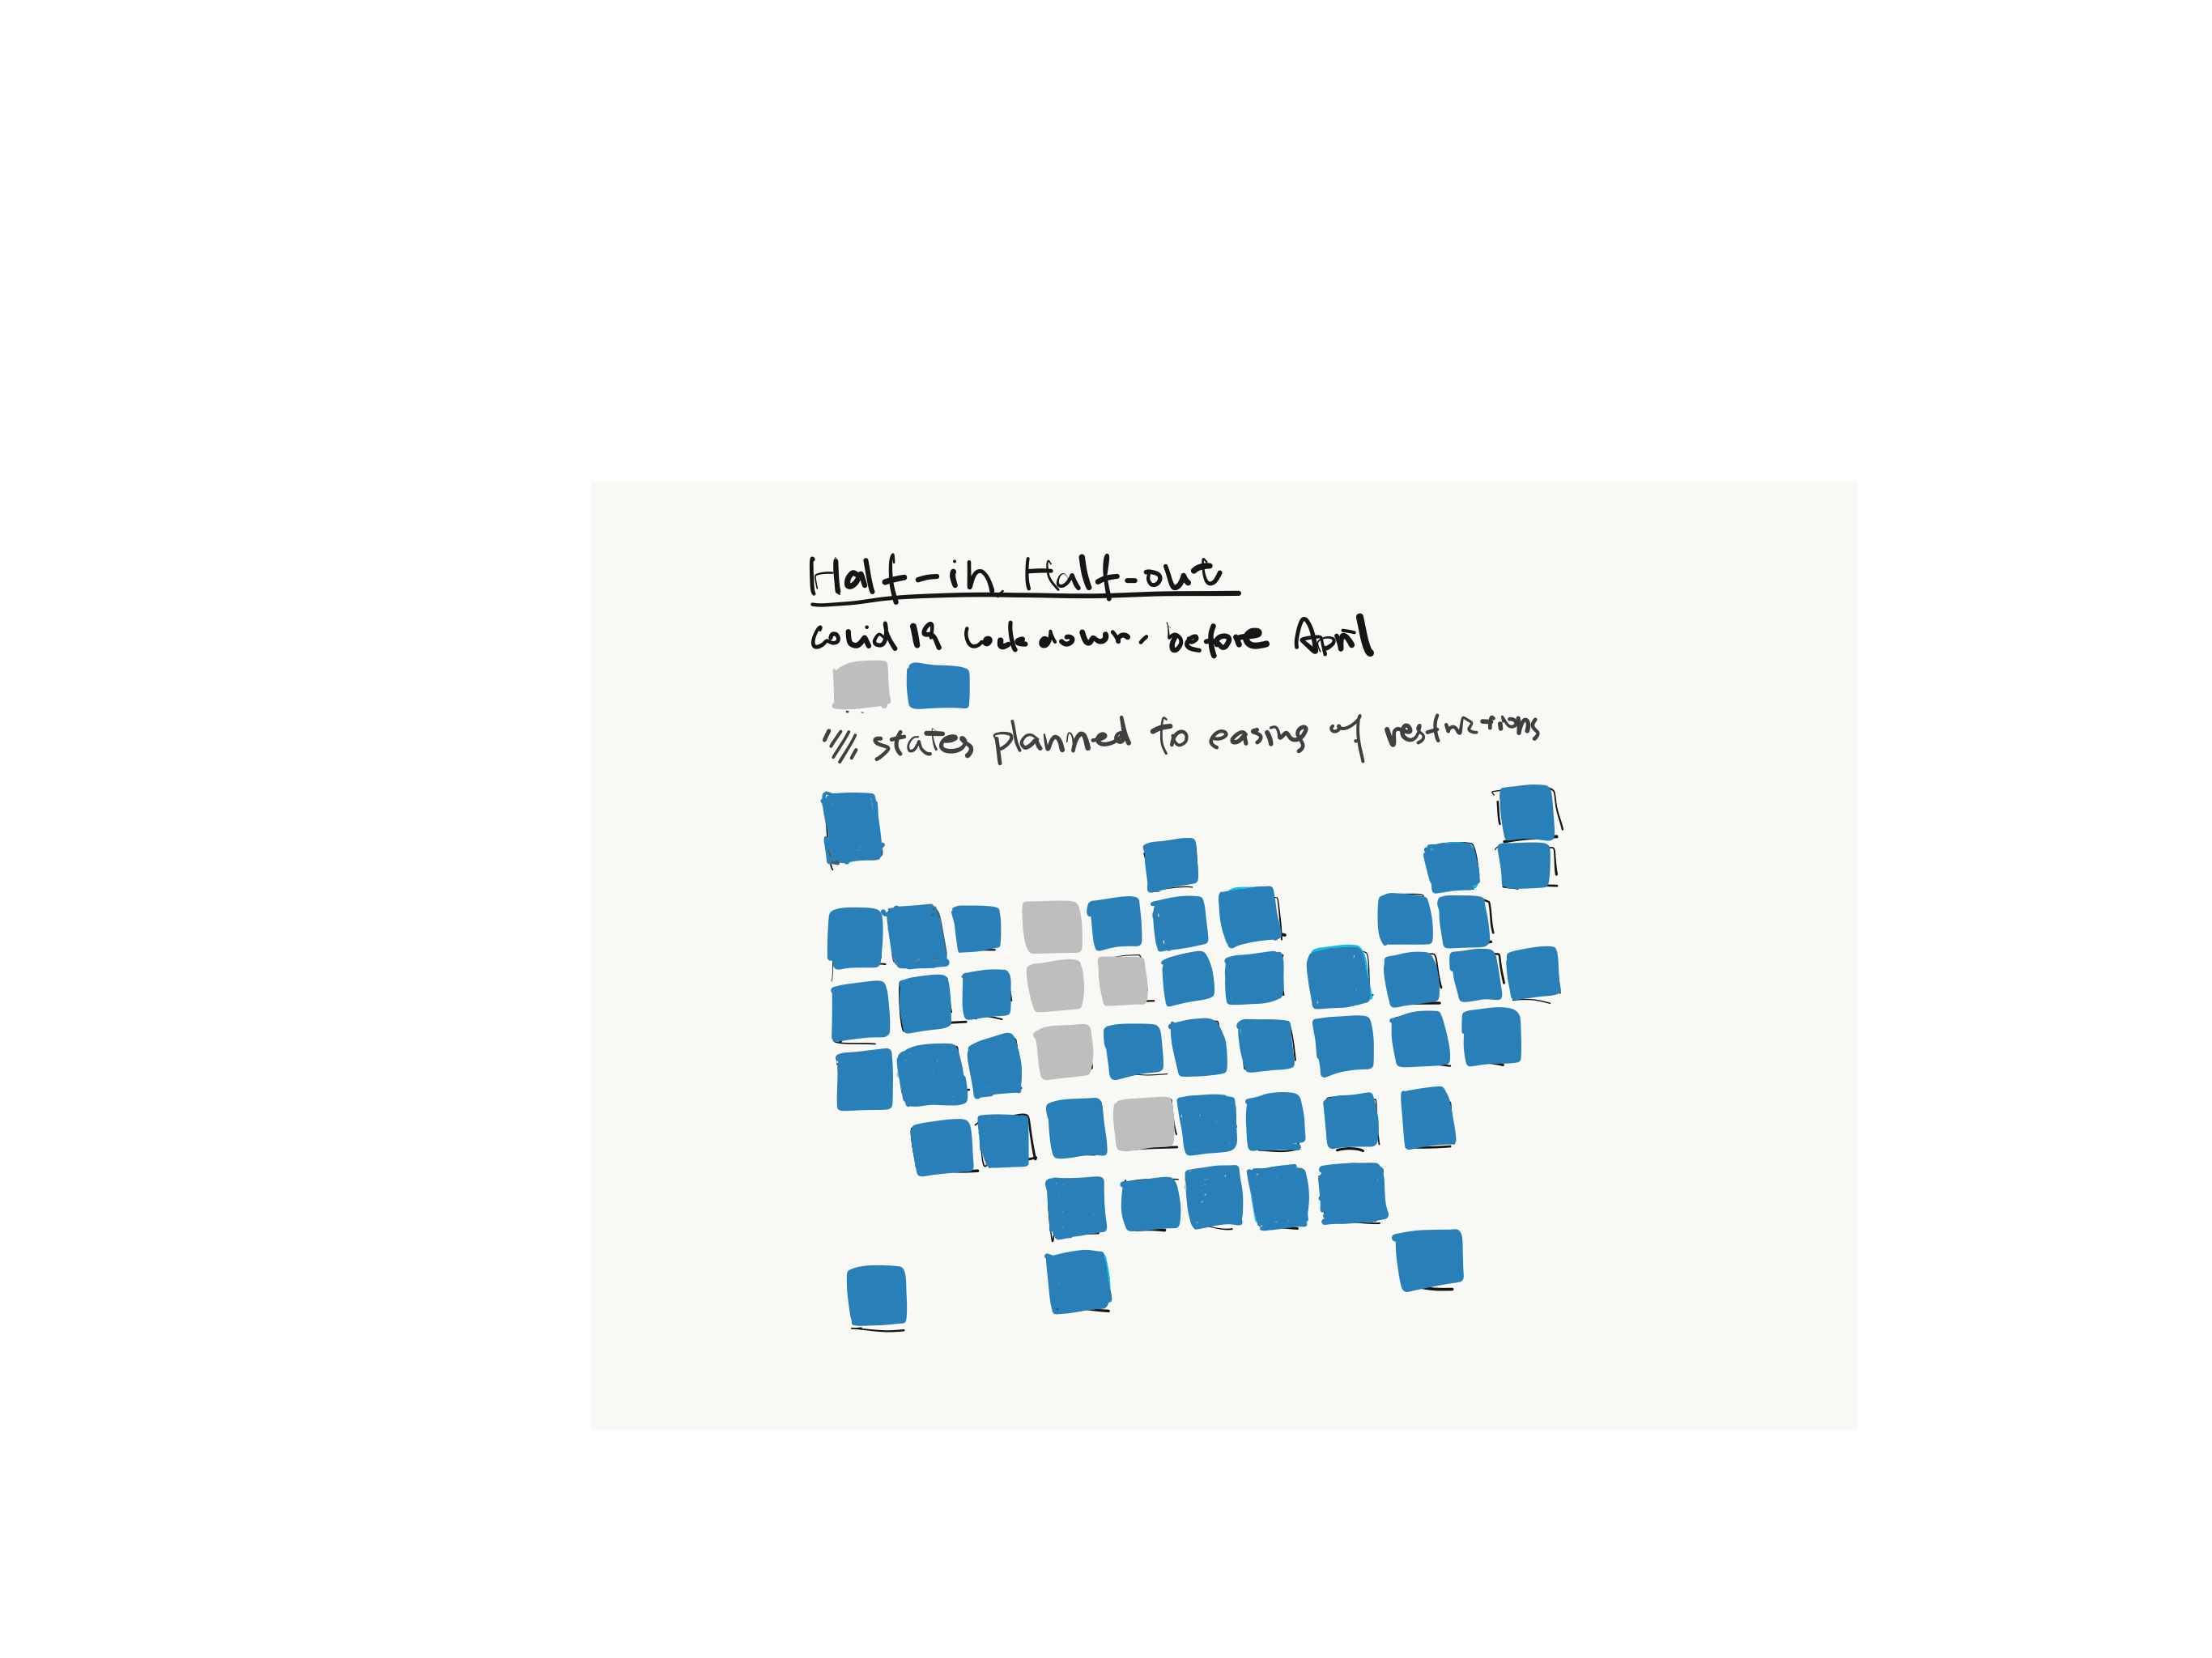 Half-in Half-out
covid 19 lockdown. before April
states planned to easing of restrictions